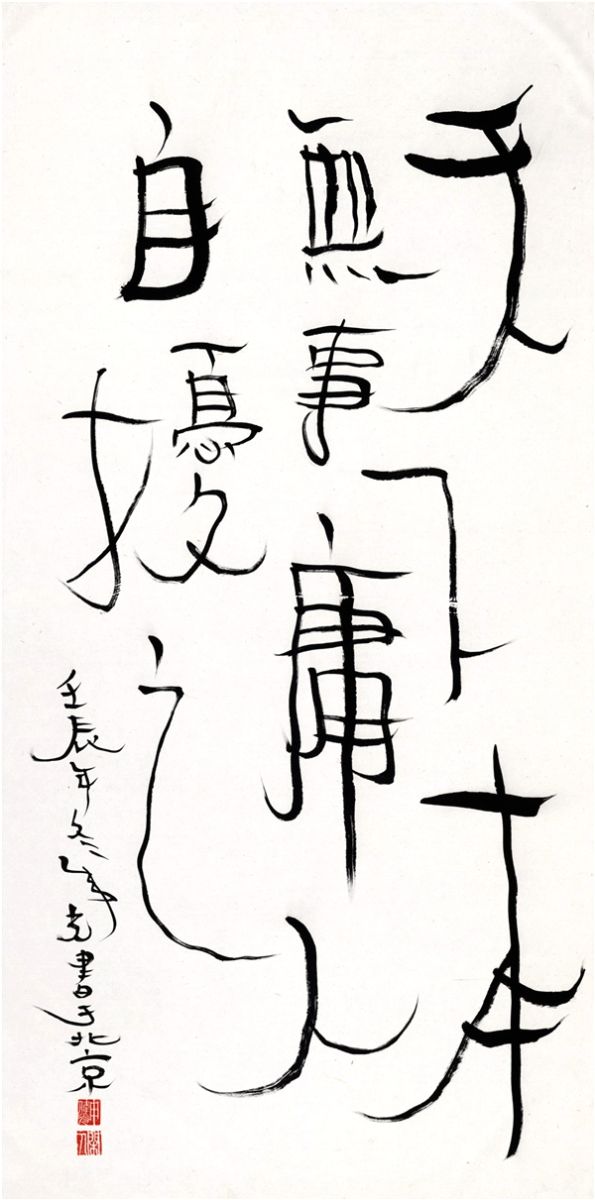 天下本
無事庸人
自擾之
壬辰年冬年克書于北京